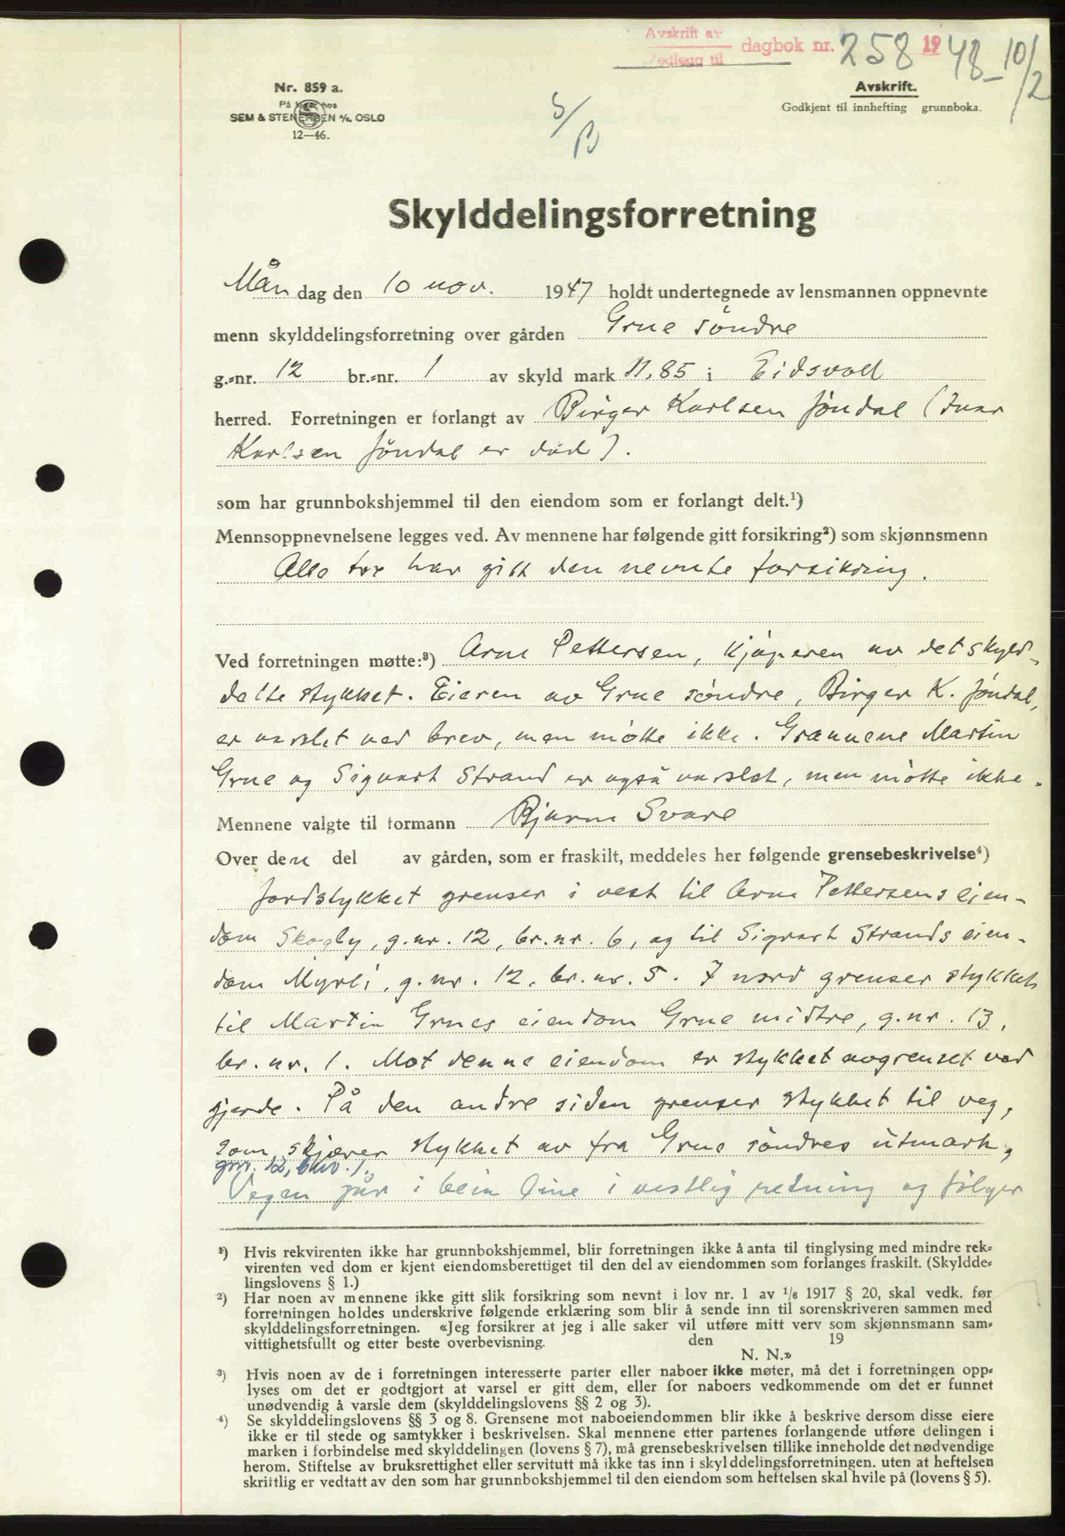 Avskrift av
Vedlegg til dagbok nr. 258 1948 - 10/2
Nr. 859 a.
På lager hos
SEM & STENERSEN A/S. OSLO
12—46.
Avskrift.
Godkjent til innhefting grunnboka.
Skylddelingsforretning
Mån dag den 10 nov. 1947 holdt undertegnede av lensmannen oppnevnte
menn skylddelingsforretning over gården Grue søndre
g.-nr. 12 br.-nr. 1 av skyld mark 11,85 i Eidsvoll
herred. Forretningen er forlangt av Birger Karlsen Jøndal (Ivar
Karlsen Jøndal er død).
som har grunnbokshjemmel til den eiendom som er forlangt delt.¹)
Mennsoppnevnelsene legges ved. Av mennene har følgende gitt forsikring²) som skjønnsmenn
Alle tre har gitt den nevnte forsikring.
Ved forretningen møtte:³) Arne Pettersen, kjøperen av det skyld-
delte stykket. Eieren av Grue søndre, Birger K. Jøndal,
er varslet ved brev, men møtte ikke. Grannene Martin
Grue og Sigvart Strand er også varslet, men møtte ikke.
Mennene valgte til formann Bjarne Svare
Over den del av gården, som er fraskilt, meddeles her følgende grensebeskrivelse⁴)
Jordstykket grenser i vest til Arne Pettersens eien-
dom Skogly, g.nr. 12, br.nr. 6, og til Sigvart Strands eien-
dom Myrli, g.nr. 12, br.nr. 5. I nord grenser stykket
til Martin Grues eiendom Grue midtre, g.nr. 13,
br.nr. 1. Mot denne eiendom er stykket avgrenset ved
gjerde. På den andre siden grenser stykket til veg,
som skjærer stykket av fra Grue søndres utmark,
gnr. 12, bnr. 1.
Vegen går i bein line i vestlig retning og følger
¹) Hvis rekvirenten ikke har grunnbokshjemmel, blir forretningen ikke å anta til tinglysing med mindre rek-
virenten ved dom er kjent eiendomsberettiget til den del av eiendommen som forlanges fraskilt. (Skyldde-
lingslovens § 1.)
²) Har noen av mennene ikke gitt slik forsikring som nevnt i lov nr. 1 av 1/6 1917 § 20, skal vedk. før
forretningen holdes underskrive følgende erklæring som blir å sende inn til sorenskriveren sammen med
skylddelingsforretningen. «Jeg forsikrer at jeg i alle saker vil utføre mitt verv som skjønnsmann sam-
vittighetsfullt og etter beste overbevisning. den 19
N. N.»
³) Hvis noen av de i forretningen interesserte parter eller naboer ikke møter, må det i forretningen opp-
lyses om det er godtgjort at varsel er gitt dem, eller for naboers vedkommende om det er funnet
unødvendig å varsle dem (skylddelingslovens §§ 2 og 3).
⁴) Se skylddelingslovens §§ 3 og 8. Grensene mot naboeiendommen blir ikke å beskrive dersom disse eiere
ikke er til stede og samtykker i beskrivelsen. Skal mennene etter partenes forlangende utføre delingen i
marken i forbindelse med skylddelingen (lovens § 7), må grensebeskrivelsen tillike inneholde det nødvendige
herom. Stiftelse av bruksrettighet eller servitutt må ikke tas inn i skylddelingsforretningen. uten at heftelsen
skriftlig er vedtatt av den som har grunnbokshjemmel til den eiendom som heftelsen skal hvile på (lovens § 5).